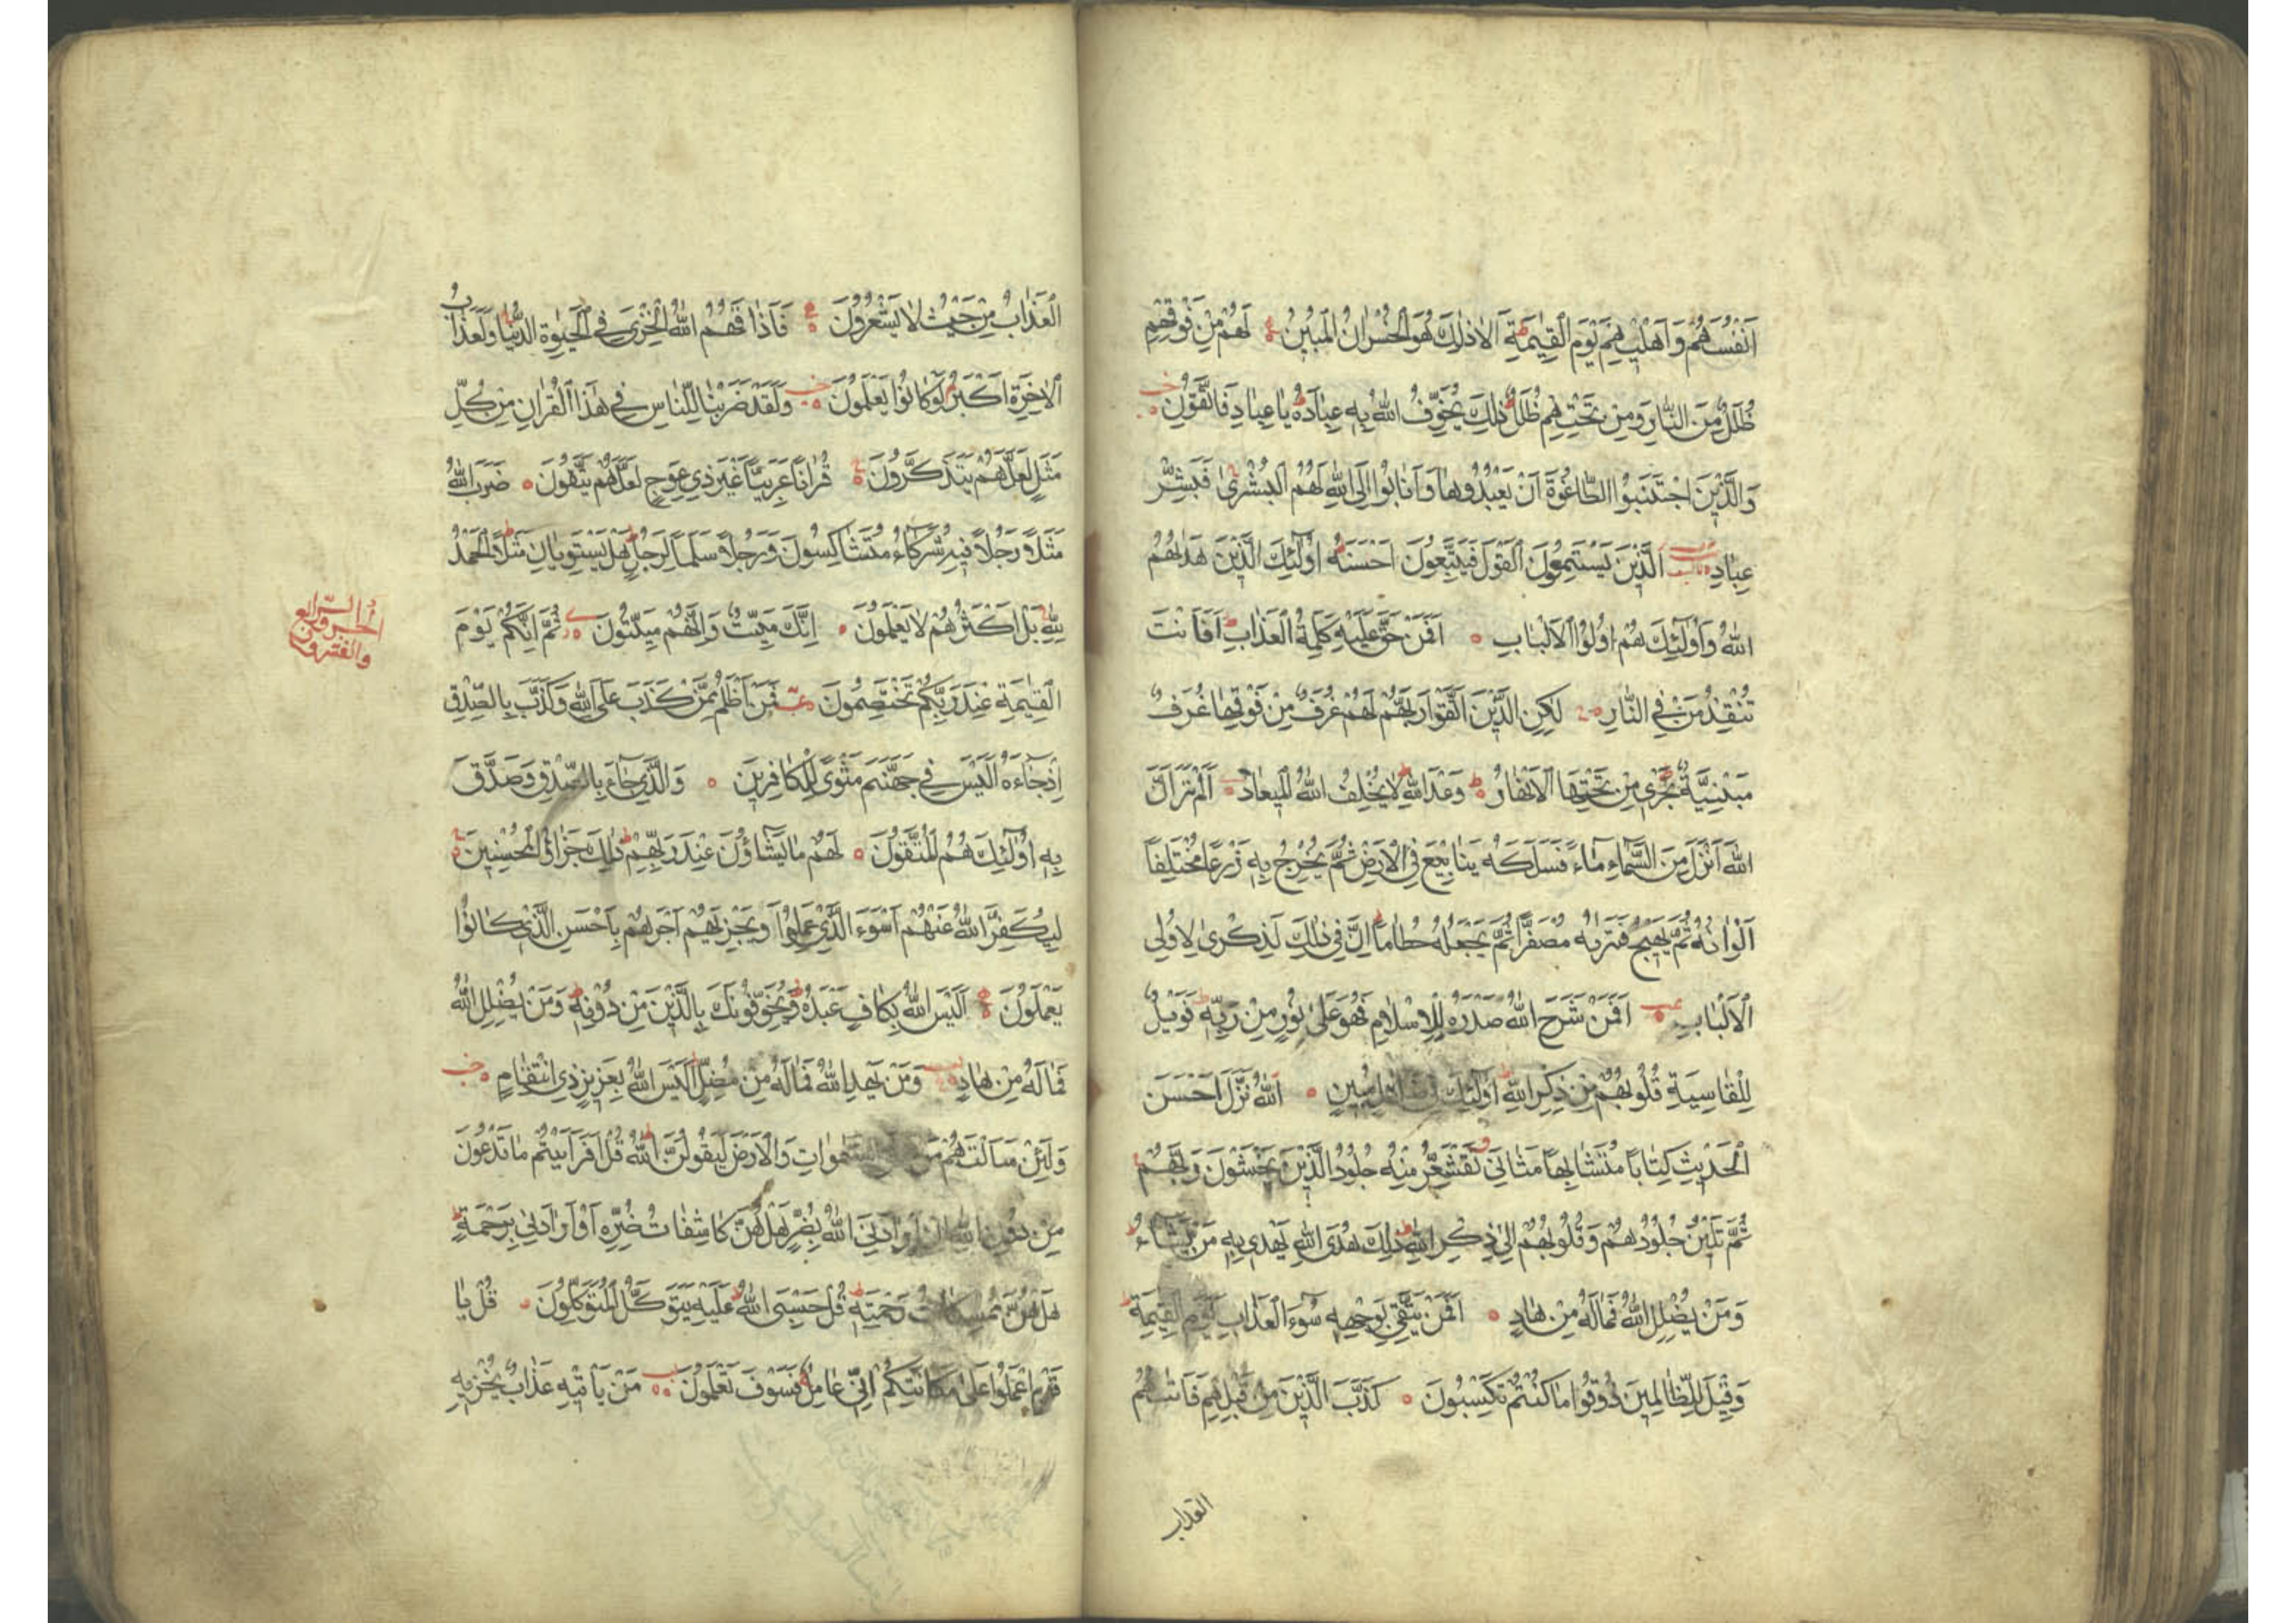 اَنْفُسَهُمْ وَاَهْلِيهِمْ يَوْمَ الْقِيٰمَةِ اَلَا ذٰلِكَ هُوَ الْخُسْرَانُ الْمُبِينُ لَهُمْ مِنْ فَوْقِهِمْ
ظُلَلٌ مِنَ النَّارِ وَمِنْ تَحْتِهِمْ ظُلَلٌ ذٰلِكَ يُخَوِّفُ اللّٰهُ بِهٖ عِبَادَهُ يَا عِبَادِ فَاتَّقُونِ
وَالَّذِينَ اجْتَنَبُوا الطَّاغُوتَ اَنْ يَعْبُدُوهَا وَاَنَابُوا اِلَى اللّٰهِ لَهُمُ الْبُشْرٰى فَبَشِّرْ
عِبَادِ اَلَّذِينَ يَسْتَمِعُونَ الْقَوْلَ فَيَتَّبِعُونَ اَحْسَنَهُ اُولٰئِكَ الَّذِينَ هَدٰيهُمُ
اللّٰهُ وَاُولٰئِكَ هُمْ اُولُوا الْاَلْبَابِ اَفَمَنْ حَقَّ عَلَيْهِ كَلِمَةُ الْعَذَابِ اَفَاَنْتَ
تُنْقِذُ مَنْ فِي النَّارِ لٰكِنِ الَّذِينَ اتَّقَوْا رَبَّهُمْ لَهُمْ غُرَفٌ مِنْ فَوْقِهَا غُرَفٌ
مَبْنِيَّةٌ تَجْرِي مِنْ تَحْتِهَا الْاَنْهَارُ وَعْدَ اللّٰهِ لَا يُخْلِفُ اللّٰهُ الْمِيعَادَ اَلَمْ تَرَ اَنَّ
اللّٰهَ اَنْزَلَ مِنَ السَّمَاءِ مَاءً فَسَلَكَهُ يَنَابِيعَ فِي الْاَرْضِ ثُمَّ يُخْرِجُ بِهٖ زَرْعًا مُخْتَلِفًا
اَلْوَانُهُ ثُمَّ يَهِيجُ فَتَرٰيهُ مُصْفَرًّا ثُمَّ يَجْعَلُهُ حُطَامًا اِنَّ فِي ذٰلِكَ لَذِكْرٰى لِاُولِي
الْاَلْبَابِ اَفَمَنْ شَرَحَ اللّٰهُ صَدْرَهُ لِلْاِسْلَامِ فَهُوَ عَلٰى نُورٍ مِنْ رَبِّهٖ فَوَيْلٌ
لِلْقَاسِيَةِ قُلُوبُهُمْ مِنْ ذِكْرِ اللّٰهِ اُولٰئِكَ فِي ضَلَالٍ مُبِينٍ اَللّٰهُ نَزَّلَ اَحْسَنَ
الْحَدِيثِ كِتَابًا مُتَشَابِهًا مَثَانِيَ تَقْشَعِرُّ مِنْهُ جُلُودُ الَّذِينَ يَخْشَوْنَ رَبَّهُمْ
ثُمَّ تَلِينُ جُلُودُهُمْ وَقُلُوبُهُمْ اِلٰى ذِكْرِ اللّٰهِ ذٰلِكَ هُدَى اللّٰهِ يَهْدِي بِهٖ مَنْ يَشَاءُ
وَمَنْ يُضْلِلِ اللّٰهُ فَمَا لَهُ مِنْ هَادٍ اَفَمَنْ يَتَّقِي بِوَجْهِهٖ سُوءَ الْعَذَابِ يَوْمَ الْقِيٰمَةِ
وَقِيلَ لِلظَّالِمِينَ ذُوقُوا مَا كُنْتُمْ تَكْسِبُونَ كَذَّبَ الَّذِينَ مِنْ قَبْلِهِمْ فَاَتٰيهُمُ
العذاب
الْعَذَابُ مِنْ حَيْثُ لَا يَشْعُرُونَ فَاَذَاقَهُمُ اللّٰهُ الْخِزْيَ فِي الْحَيٰوةِ الدُّنْيَا وَلَعَذَابُ
الْاٰخِرَةِ اَكْبَرُ لَوْ كَانُوا يَعْلَمُونَ وَلَقَدْ ضَرَبْنَا لِلنَّاسِ فِي هٰذَا الْقُرْاٰنِ مِنْ كُلِّ
مَثَلٍ لَعَلَّهُمْ يَتَذَكَّرُونَ قُرْاٰنًا عَرَبِيًّا غَيْرَ ذِي عِوَجٍ لَعَلَّهُمْ يَتَّقُونَ ضَرَبَ اللّٰهُ
مَثَلًا رَجُلًا فِيهِ شُرَكَاءُ مُتَشَاكِسُونَ وَرَجُلًا سَلَمًا لِرَجُلٍ هَلْ يَسْتَوِيَانِ مَثَلًا اَلْحَمْدُ
لِلّٰهِ بَلْ اَكْثَرُهُمْ لَا يَعْلَمُونَ اِنَّكَ مَيِّتٌ وَاِنَّهُمْ مَيِّتُونَ ثُمَّ اِنَّكُمْ يَوْمَ
الجزو الرابع
والعشرون
الْقِيٰمَةِ عِنْدَ رَبِّكُمْ تَخْتَصِمُونَ فَمَنْ اَظْلَمُ مِمَّنْ كَذَبَ عَلَى اللّٰهِ وَكَذَّبَ بِالصِّدْقِ
اِذْ جَاءَهُ اَلَيْسَ فِي جَهَنَّمَ مَثْوًى لِلْكَافِرِينَ وَالَّذِي جَاءَ بِالصِّدْقِ وَصَدَّقَ
بِهٖ اُولٰئِكَ هُمُ الْمُتَّقُونَ لَهُمْ مَا يَشَاؤُنَ عِنْدَ رَبِّهِمْ ذٰلِكَ جَزَاؤُا الْمُحْسِنِينَ
لِيُكَفِّرَ اللّٰهُ عَنْهُمْ اَسْوَءَ الَّذِي عَمِلُوا وَيَجْزِيَهُمْ اَجْرَهُمْ بِاَحْسَنِ الَّذِي كَانُوا
يَعْمَلُونَ اَلَيْسَ اللّٰهُ بِكَافٍ عَبْدَهُ وَيُخَوِّفُونَكَ بِالَّذِينَ مِنْ دُونِهٖ وَمَنْ يُضْلِلِ اللّٰهُ
فَمَا لَهُ مِنْ هَادٍ وَمَنْ يَهْدِ اللّٰهُ فَمَا لَهُ مِنْ مُضِلٍّ اَلَيْسَ اللّٰهُ بِعَزِيزٍ ذِي انْتِقَامٍ
وَلَئِنْ سَاَلْتَهُمْ مَنْ خَلَقَ السَّمٰوَاتِ وَالْاَرْضَ لَيَقُولُنَّ اللّٰهُ قُلْ اَفَرَاَيْتُمْ مَا تَدْعُونَ
مِنْ دُونِ اللّٰهِ اِنْ اَرَادَنِيَ اللّٰهُ بِضُرٍّ هَلْ هُنَّ كَاشِفَاتُ ضُرِّهٖ اَوْ اَرَادَنِي بِرَحْمَةٍ
هَلْ هُنَّ مُمْسِكَاتُ رَحْمَتِهٖ قُلْ حَسْبِيَ اللّٰهُ عَلَيْهِ يَتَوَكَّلُ الْمُتَوَكِّلُونَ قُلْ يَا
قَوْمِ اعْمَلُوا عَلٰى مَكَانَتِكُمْ اِنِّي عَامِلٌ فَسَوْفَ تَعْلَمُونَ مَنْ يَاْتِيهِ عَذَابٌ يُخْزِيهِ